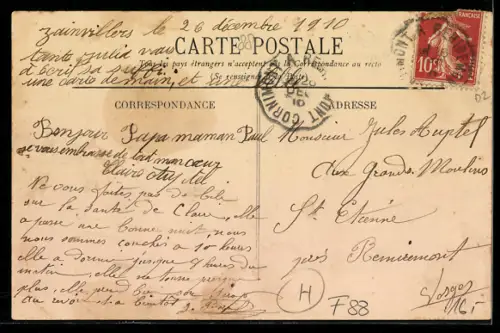 Zainvillers le 26 décembre 1910
tante julia vous
d'Ecrit sa
une carte demain, et une
CARTE POSTALE
Tous les pays étrangers n'acceptent pas la Correspondance au recto
(Se renseigner à la Poste)
CORNIMONT
26
DEC
10
10c
CORRESPONDANCE
ADRESSE
Bonjour Papa maman Paul
je vous embrasse de tout mon coeur
Claire
Ne vous faites pas de bile
sur la santé de Claire, elle
a passé une bonne nuit, nous
nous sommes couchés à 10 heures
elle a dormi jusque 8 heures du
matin, elle ne tousse presque
plus, elle perd bien
au revoir et a bientôt
Monsieur Jules
aux Grands Moulins
St Etienne
près Remiremont
Vosges
H
F88
88
02